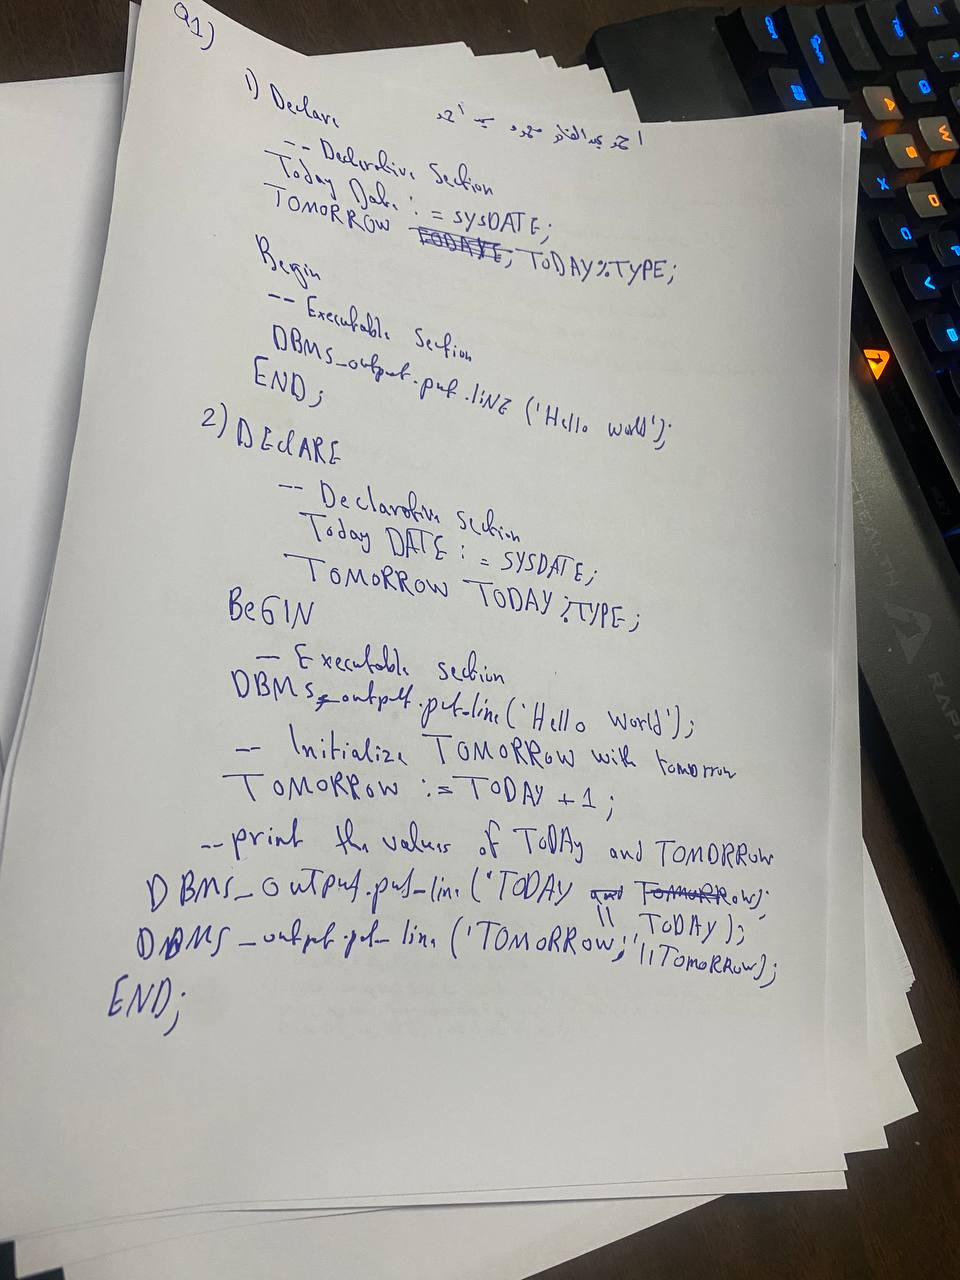 Q1)
احمد عبدالقادر محمد أحمد
1) Declare
-- Declarative Section
Today Date := SYSDATE;
TOMORROW TODAY%TYPE;
Begin
-- Executable Section
DBMS_output.put.liNE ('Hello world');
END;
2) DEclARE
-- Declarative section
Today DATE := SYSDATE;
TOMORROW TODAY %TYPE;
BeGIN
- Executable section
DBMS_output.put-line('Hello World');
-- Initialize TOMORROW with tomorrow
TOMORROW := TODAY +1;
-- print the values of ToDAy and TOMORROW
DBMS_Output.put-line ('TODAY and TOMORROW);
|| TODAY);
DBMS_output.put-line ('TOMORROW; '||TOMORROW);
END;